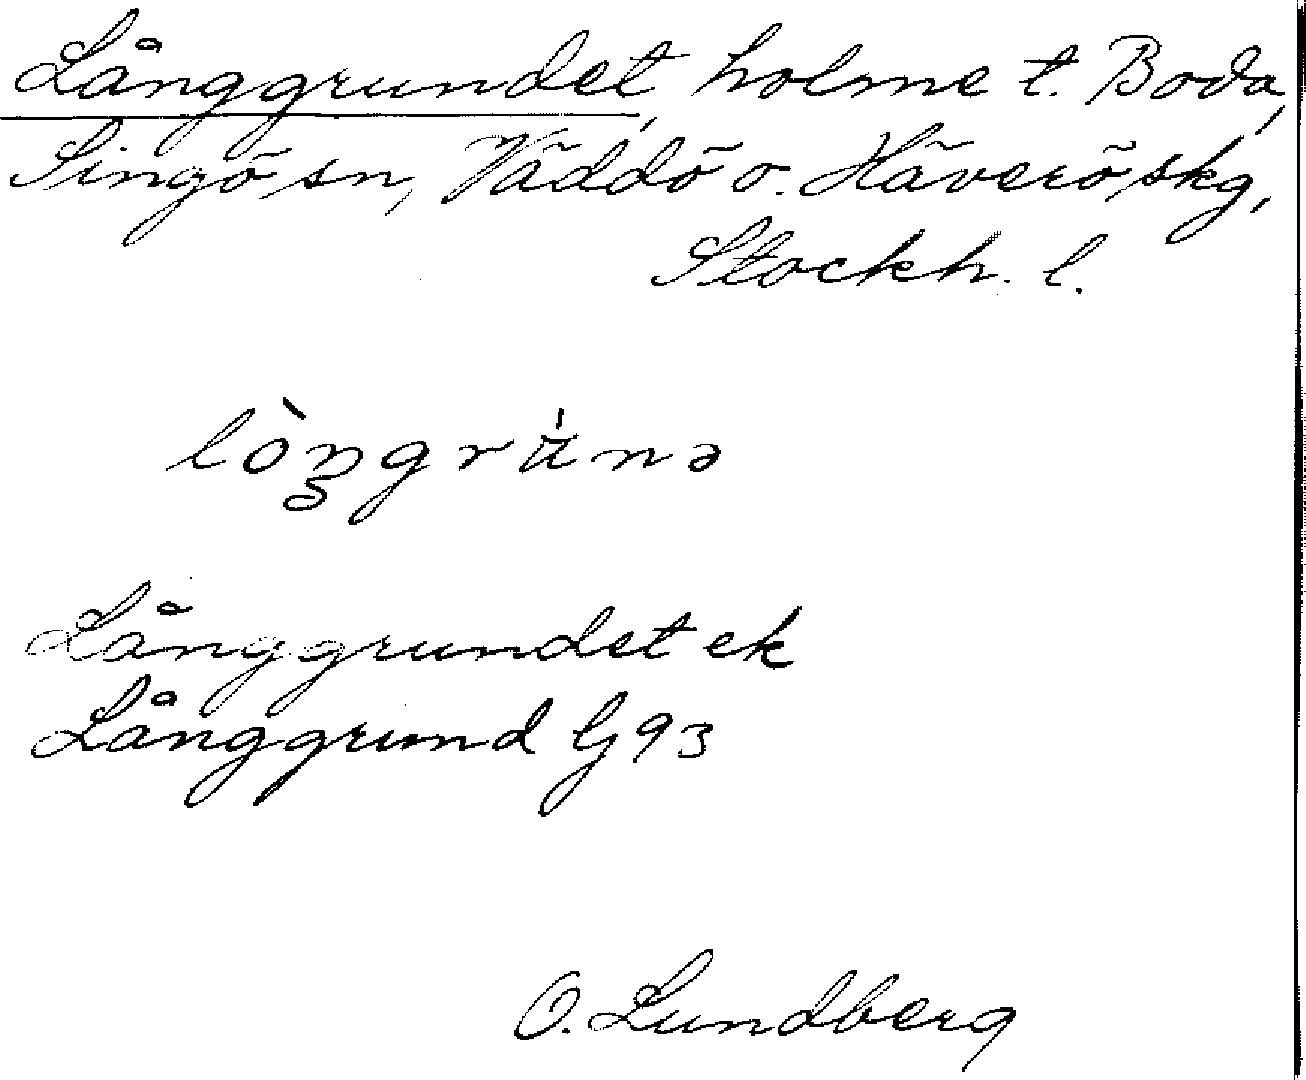 Långgrundet, holme t. Boda,
Singö sn, Väddö o. Häverö skg,
Stockh. l.
Långgrundet ek
Långgrund G 93
O. Lundberg